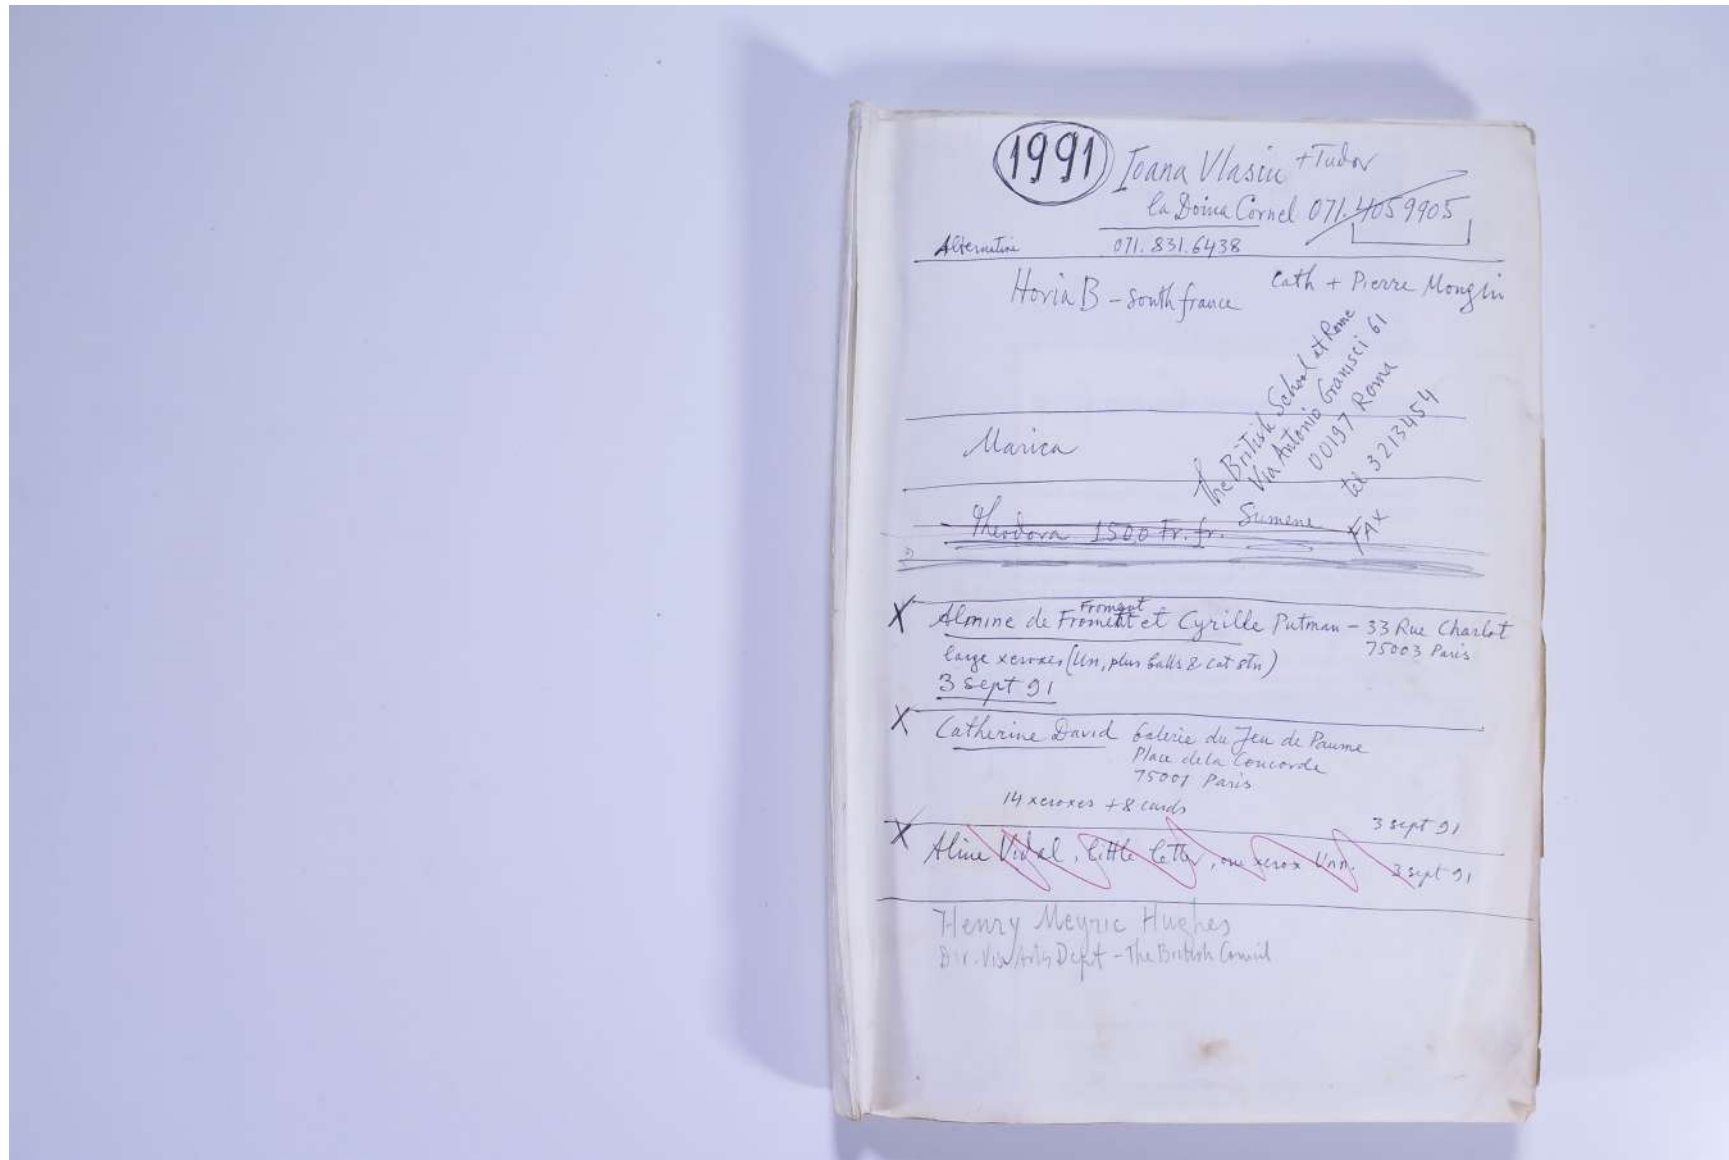 1991 Ioana Vlasiu + Tudor
la Doina Cornel 071.405 9905
Alternative 071.831.6438
Horia B - South france
Cath + Pierre Mongin
The British School at Rome
Via Antonio Gramsci 61
00197 Roma
tel 3213454
FAX
Marica
Theodora 1500 Fr. fr. Sumene
Fromont
Almine de et Cyrille Putman - 33 Rue Charlot
75003 Paris
large xeroxes (Un, plus balls & cat stn)
3 sept 91
Catherine David Galerie du Jeu de Paume
Place de la Concorde
75001 Paris
14 xeroxes + 8 cards
3 sept 91
Aline Vidal, little letter, one xerox Unn. 3 sept 91
Henry Meyric Hughes
Dir. Vis Arts Dept - The British Council